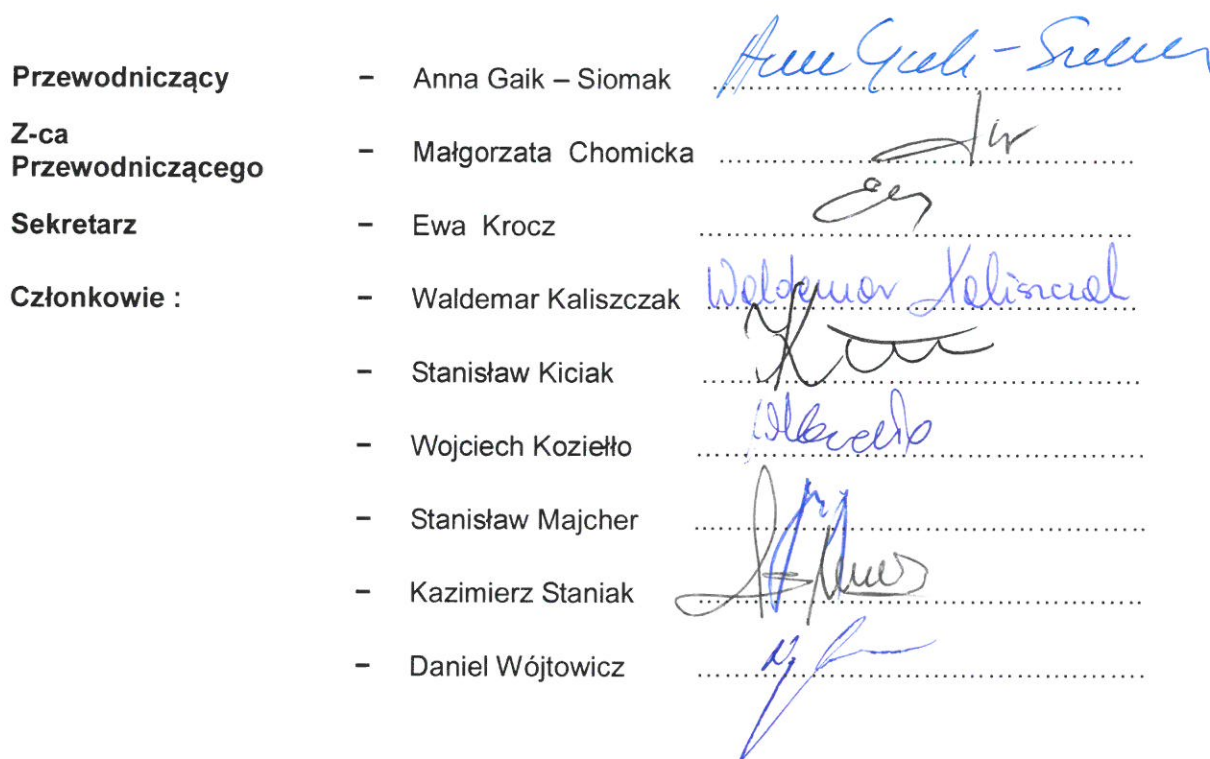 Przewodniczący - Anna Gaik – Siomak Anna Gaik - Siomak
Z-ca
Przewodniczącego - Małgorzata Chomicka
Sekretarz - Ewa Krocz
Członkowie : - Waldemar Kaliszczak Waldemar Kaliszczak
- Stanisław Kiciak
- Wojciech Koziełło
- Stanisław Majcher
- Kazimierz Staniak
- Daniel Wójtowicz